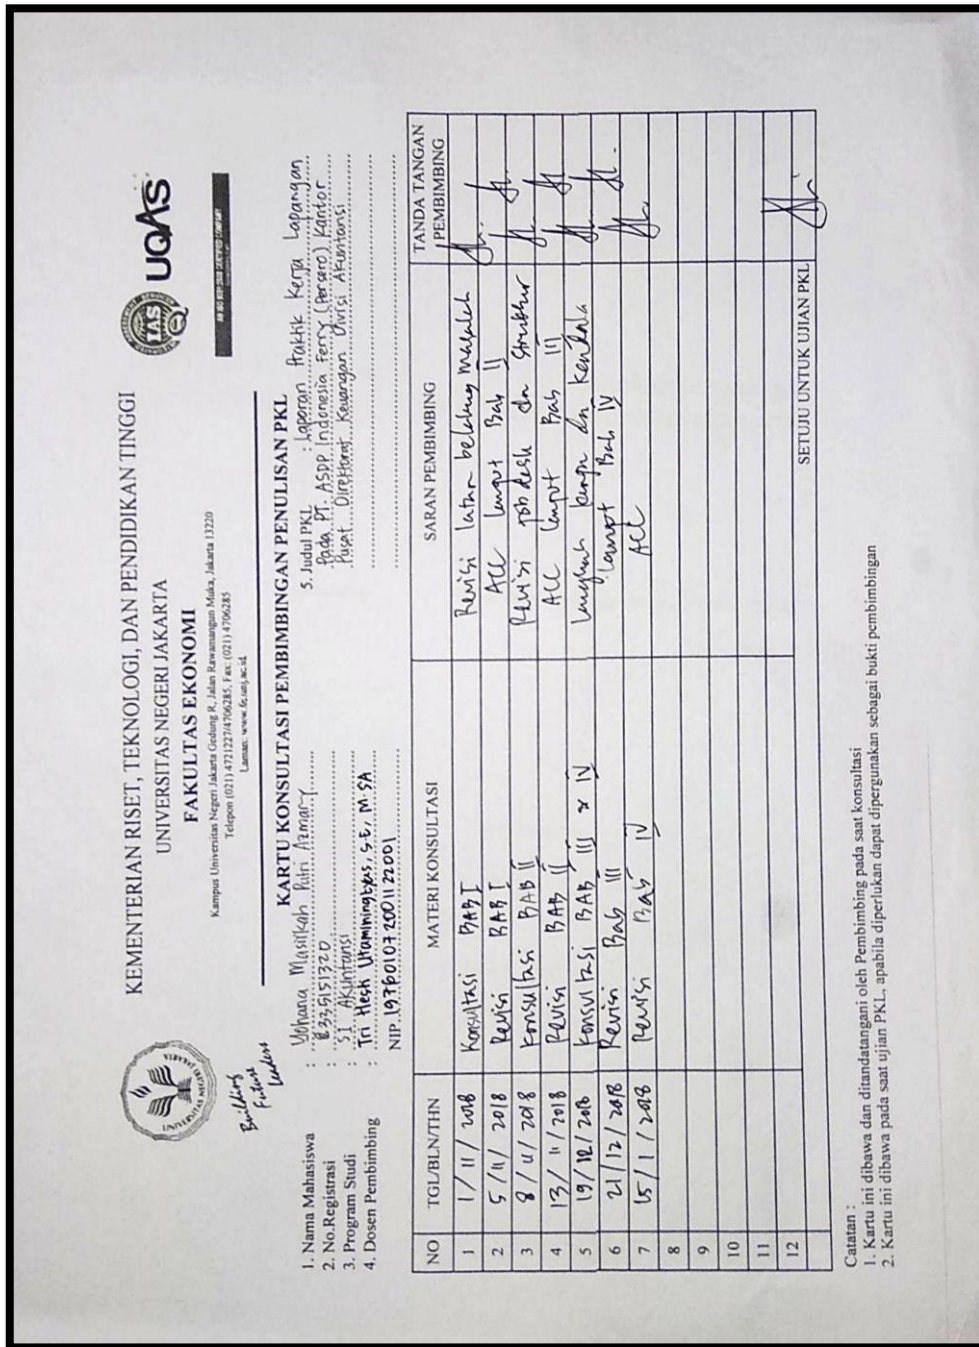 KEMENTERIAN RISET, TEKNOLOGI, DAN PENDIDIKAN TINGGI
UNIVERSITAS NEGERI JAKARTA
FAKULTAS EKONOMI
Kampus Universitas Negeri Jakarta Gedung R, Jalan Rawamangun Muka, Jakarta 13220
Telepon (021) 4721227/4706285, Fax: (021) 4706285
Laman: www.fe.unj.ac.id
Building
Future
Leaders
IAS
UQAS
KARTU KONSULTASI PEMBIMBINGAN PENULISAN PKL
1. Nama Mahasiswa : Yohana Masitkah Putri Azmary
2. No.Registrasi : 8335151320
3. Program Studi : S1 Akuntansi
4. Dosen Pembimbing : Tri Hesti Utaminingtyas, S.E, M.SA
NIP. 197601072001122001
5. Judul PKL : Laporan Praktik Kerja Lapangan
Pada PT. ASDP Indonesia Ferry (Persero) Kantor
Pusat Direktorat Keuangan Divisi Akuntansi
NO TGL/BLN/THN MATERI KONSULTASI SARAN PEMBIMBING TANDA TANGAN PEMBIMBING
1 1/11/2018 Konsultasi BAB I Revisi latar belakang masalah
2 5/11/2018 Revisi BAB I ACC lanjut Bab II
3 8/11/2018 Konsultasi BAB II Revisi job desk dan Struktur
4 13/11/2018 Revisi BAB II ACC lanjut Bab III
5 19/12/2018 Konsultasi BAB III & IV Langkah kerja dan kendala
6 21/12/2018 Revisi Bab III Lanjut Bab IV
7 15/1/2018 Revisi Bab IV ACC
8
9
10
11
12
SETUJU UNTUK UJIAN PKL
Catatan :
1. Kartu ini dibawa dan ditandatangani oleh Pembimbing pada saat konsultasi
2. Kartu ini dibawa pada saat ujian PKL, apabila diperlukan dapat dipergunakan sebagai bukti pembimbingan